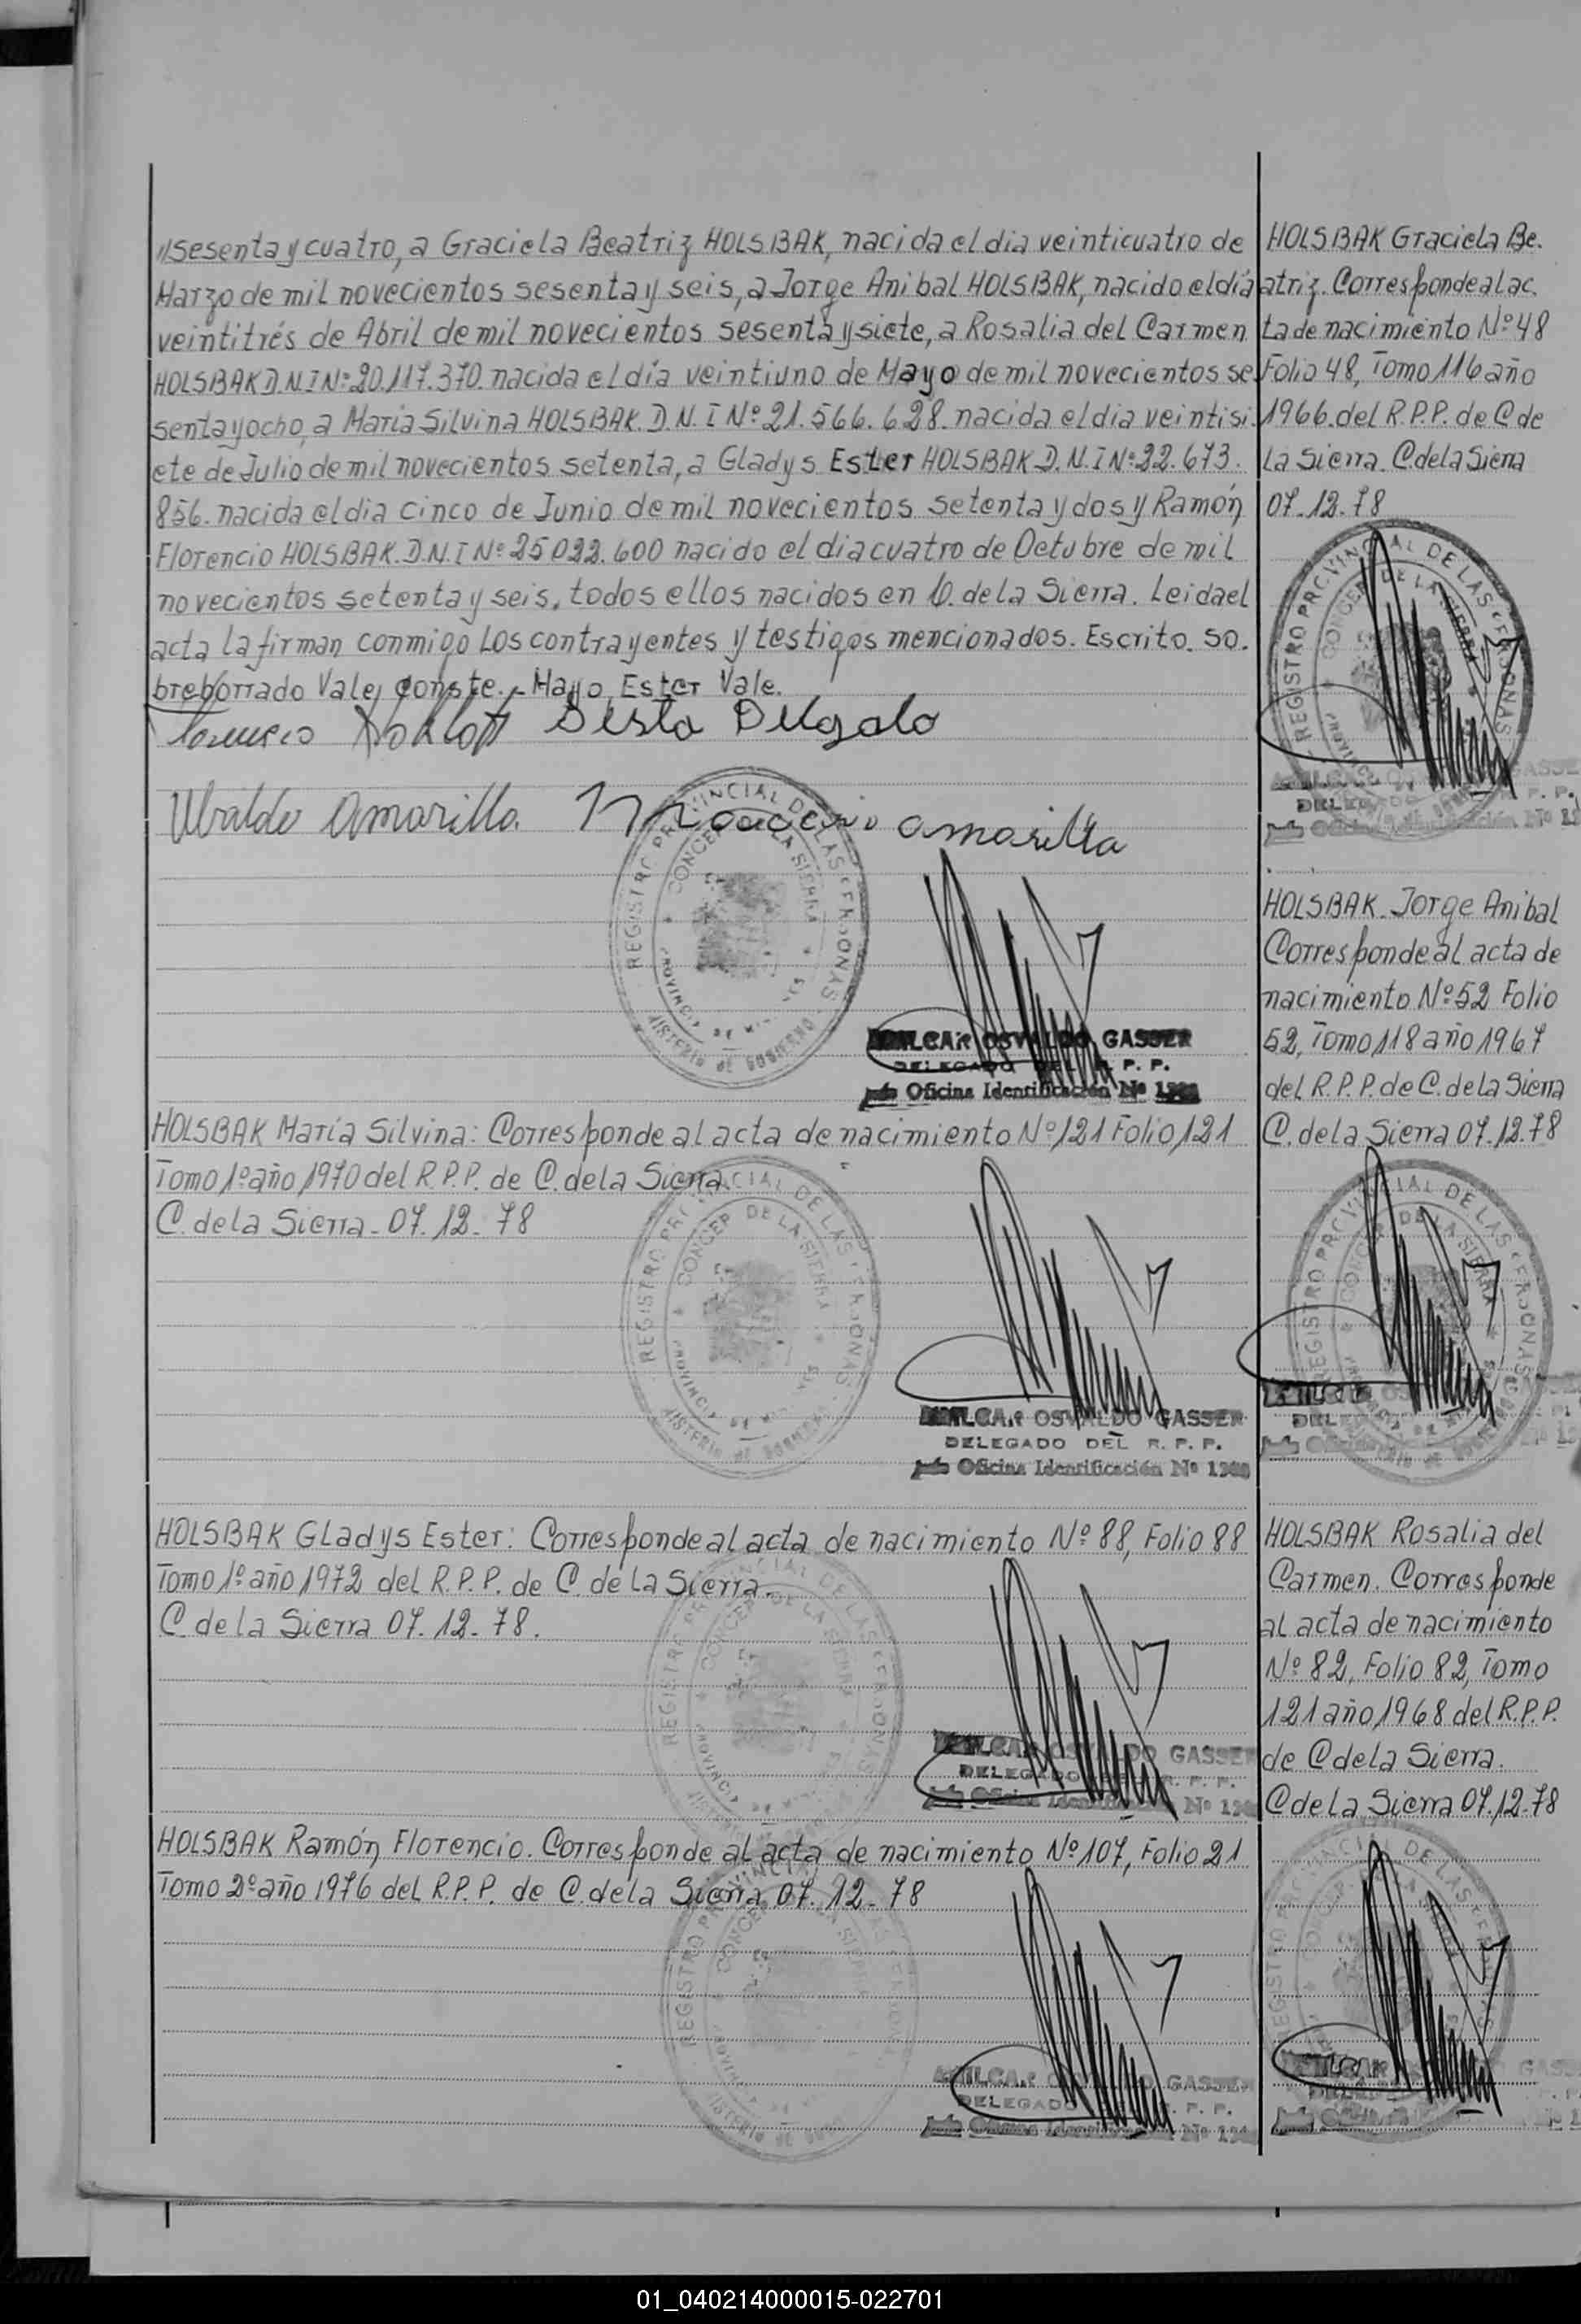 "sesenta y cuatro, a Graciela Beatriz HOLSBAK, nacida el dia veinticuatro de
Marzo de mil novecientos sesenta y seis, a Jorge Anibal HOLSBAK, nacido el día
veintitrés de Abril de mil novecientos sesenta y siete, a Rosalia del Carmen
HOLSBAK D.N.I Nº 20.117.370. nacida el día veintiuno de Mayo de mil novecientos se
senta y ocho, a María Silvina HOLSBAK. D.N.I Nº 21.566.628. nacida el dia veintisi.
ete de Julio de mil novecientos setenta, a Gladys Ester HOLSBAK D.N.I Nº 22.673.
856. nacida el dia cinco de Junio de mil novecientos setenta y dos y Ramón
Florencio HOLSBAK. D.N.I Nº 25022.600 nacido el dia cuatro de Octubre de mil
novecientos setenta y seis, todos ellos nacidos en C. de la Sierra. Leida el
acta la firman conmigo Los contrayentes y testigos mencionados. Escrito. so.
breborrado Vale, conste. - Mayo, Ester Vale.
Sesta Delgado
Ubaldo Amarilla. amarilla
REGISTRO PROVINCIAL DE LAS PERSONAS
CONCEP DE LA SIERRA
AMILCAR OSVALDO GASSER
DELEGADO DEL R. P. P.
Oficina Identificación Nº
HOLSBAK María Silvina: Corresponde al acta de nacimiento Nº 121 Folio 121
Tomo 1º año 1970 del R.P.P. de C. de la Sierra.
C. de la Sierra - 07. 12 - 78
REGISTRO PROVINCIAL DE LAS PERSONAS
CONCEP DE LA SIERRA
AMILCAR OSVALDO GASSER
DELEGADO DEL R. P. P.
Oficina Identificación Nº
HOLSBAK Gladys Ester: Corresponde al acta de nacimiento Nº 88, Folio 88
Tomo 1º año 1972 del R.P.P. de C. de la Sierra.
C. de la Sierra 07. 12 - 78.
REGISTRO PROVINCIAL DE LAS PERSONAS
CONCEP DE LA SIERRA
AMILCAR OSVALDO GASSER
DELEGADO R. P. P.
HOLSBAK Ramón Florencio. Corresponde al acta de nacimiento Nº 107, Folio 21
Tomo 2º año 1976 del R.P.P. de C. de la Sierra 07. 12 - 78
REGISTRO PROVINCIAL DE LAS PERSONAS
AMILCAR GASSER
DELEGADO R. P. P.
HOLSBAK Graciela Be.
atriz. Corresponde al ac.
ta de nacimiento Nº 48
Folio 48, Tomo 116 año
1966. del R.P.P. de C de
La Sierra. C de la Sierra
07-12-78
REGISTRO PROVINCIAL DE LAS PERSONAS
CONCEP DE LA SIERRA
HOLSBAK Jorge Anibal
Corresponde al acta de
nacimiento Nº 52 Folio
52, Tomo 118 año 1967
del R.P.P. de C. de la Sierra
C. de la Sierra 07.12.78
REGISTRO PROVINCIAL DE LAS PERSONAS
CONCEP DE LA SIERRA
HOLSBAK Rosalia del
Carmen. Corresponde
al acta de nacimiento
Nº 82, Folio 82, Tomo
121 año 1968 del R.P.P.
de C de la Sierra.
C de la Sierra 07.12.78
REGISTRO PROVINCIAL DE LAS
01_040214000015-022701